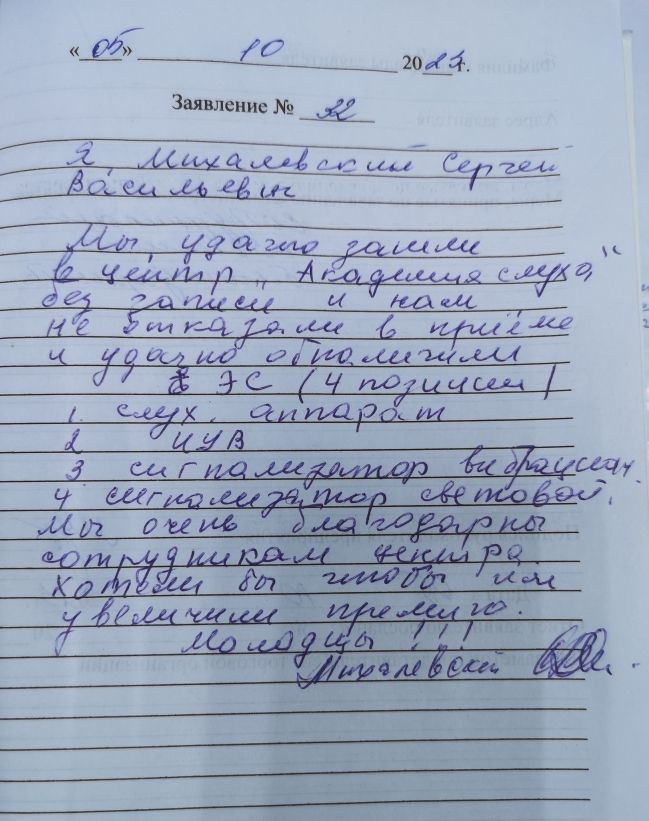 «05» 10 2023 г.
Заявление № 32
Я, Михалевский Сергей
Васильевич
Мы удачно зашли
в центр „Академия слуха"
без записи и нам
не отказали в приёме
и удачно обналичили
ЭС (4 позиции)
1. слух. аппарат
2 ИУВ
3. сигнализатор вибрацион
4. сигнализатор световой.
Мы очень благодарны
сотрудникам центра.
Хотели бы чтобы им
увеличили премию.
Молодцы !!!
Михалевский